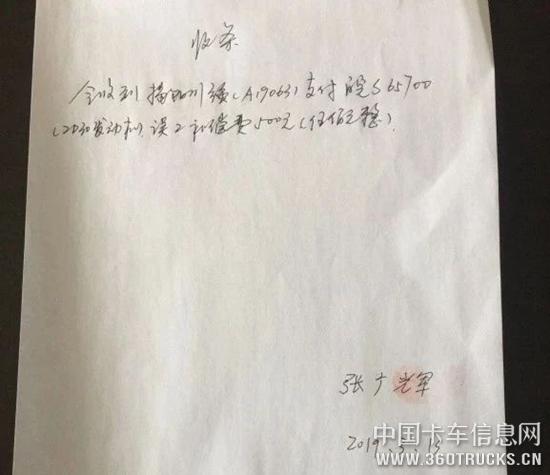 收条
今收到 (A19063) 支付 皖S65700
(2030发动机) 误工补偿费500元(伍佰元整).
张广军
2019.5.13
中国卡车信息网
WWW.360TRUCKS.CN